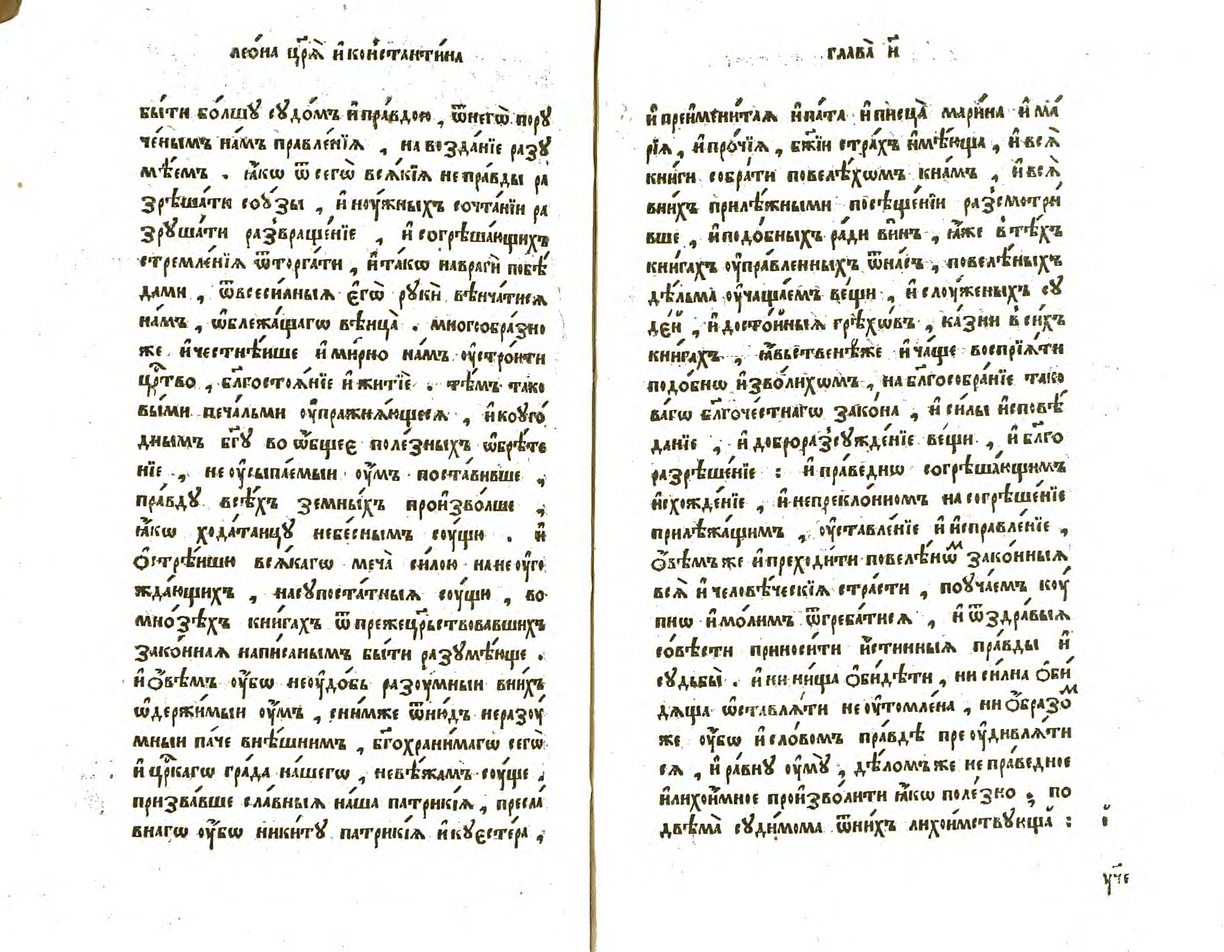 леѡ́на цр҃ѧ̀ и҆ константи́на
бы́ти бо́лшꙋ сꙋдо́мъ и҆ пра́вдою , ѿ негѡ̀ порꙋ
че́нымъ на́мъ правле́нїѧ , на возда́нїе разꙋ
мѣ́емъ . ꙗ҆́кѡ ѿ сегѡ̀ всѧ́кїѧ непра́вды ра
зрѣша́ти соꙋ́зы , и҆ нꙋ́жныхъ сочта́нїи ра
зрꙋша́ти развраще́нїе , и҆ согрѣша́ющихъ
стремле́нїѧ ѿторга́ти , и҆ та́кѡ на врагѝ побѣ́
дами , ѿ всеси́лныѧ є҆гѡ̀ рꙋкѝ вѣнча́тисѧ
на́мъ , ѡ҆блежа́щагѡ вѣнца̀ . многоѻбра́зно
же и҆ честнѣ́ише и҆ ми́рно на́мъ ᲂу҆стро́ити
црⷭ҇тво , бл҃госто́ѧнїе и҆ житїѐ . тѣ́мъ тако
вы́ми печа́льми ᲂу҆пражнѧ́ющесѧ , и҆ коуго́
днымъ бг҃ꙋ во ѻ҆́бщее поле́зныхъ ѡ҆брѣ́те
нїе , не ᲂу҆сыпа́емыи ᲂу҆́мъ поста́вивше ,
пра́вдꙋ всѣ́хъ земны́хъ произво́лше ,
ꙗ҆́кѡ хода́таицꙋ небе́снымъ сꙋ́щю . и҆
ѻ҆стрѣ́ишю всѧ́кагѡ меча̀ си́лою на не ᲂу҆го
жда́ющихъ , на сꙋпоста́тныѧ сꙋ́щю , во
мно́зѣхъ кни́гахъ ѿ прежецрⷭ҇ьствовавшихъ
зако́нная написа́нымъ бы́ти разꙋмѣ́юще .
и҆ ѻ҆́вѣмъ ᲂу҆́бѡ неᲂу҆до́бь разꙋ́мныи в ни́хъ
ѡ҆держи́мыи ᲂу҆́мъ , с ни́мже ѿню́дъ неразꙋ́
мныи па́че внѣ́шнимъ , бг҃охрани́магѡ сегѡ̀
и҆ црⷭ҇кагѡ гра́да на́шегѡ , невѣ́жамъ сꙋ́ще ,
призва́вше сла́вныѧ на́ша патри́кїѧ , пресла́
внагѡ ᲂу҆́бѡ ники́тꙋ патри́кїѧ и҆ кꙋе́стера ,
глава̀ и҃
и҆ преимени́тая и҆па́та и҆ писца̀ мари́на и҆ ма
рі́ѧ , и҆ про́чїѧ , бж҃їи стра́хъ и҆мѣ́юща , и҆ всѧ̀
кни́ги собра́ти повелѣ́хѡмъ к на́мъ , и҆ всѧ̀
в ни́хъ прилѣ́жными посѣще́нїи разсмотри́
вше , и҆ подо́бныхъ ра́ди ви́нъ , ꙗ҆́же в тѣ́хъ
кни́гахъ ᲂу҆пра́вленныхъ ѿ на́съ , повелѣ́ныхъ
дѣ́льма ᲂу҆чаща́емъ ве́щи , и҆ слоу́женыхъ сꙋ
де́й , и҆ досто́йныѧ грѣхѡ́въ , ка́зни в си́хъ
кни́гахъ , ꙗ҆́вьственѣ́же и҆ ча́ще воспрїѧ́ти
подо́бнѡ и҆зво́лихѡмъ , на бл҃гособра́нїе тако
ва́гѡ бл҃гочести́агѡ зако́на , и҆ си́лы и҆сповѣ́
да́нїе , и҆ доброразсꙋжде́нїе ве́щи , и҆ бл҃го
разрѣше́нїе : и҆ пра́веднѡ согрѣша́ющимъ
и҆схожде́нїе , и҆ непрекло́нномъ на согрѣше́нїе
прилѣжа́щимъ , ᲂу҆ставле́нїе и҆ и҆справле́нїе ,
ѻ҆́вѣмъ же и҆ преходи́ти повелѣ́нѡⷨ зако́нныѧ
всѧ̀ и҆ человѣ́ческїѧ стра́сти , поꙋча́емъ кꙋ́
пнѡ и҆ мо́лимъ ѿгреба́тисѧ , и҆ ѿ здра́выѧ
со́вѣсти приноси́ти и҆́стинныѧ пра́вды и҆
сꙋдьбы̀ . и҆ ни ни́ща ѻ҆би́дѣти , ни си́лна ѻ҆би́
дѧща ѡ҆ставлѧ́ти не ᲂу҆томле́на , ни ѻ҆́бразоⷨ
же ᲂу҆́бѡ и҆ сло́вомъ пра́вдѣ пре ᲂу҆дивлѧ́ти
сѧ , и҆ ра́внꙋ ᲂу҆мꙋ̀ , дѣ́ломъ же непра́ведное
и҆ лихои́мное произво́лити ꙗ҆́кѡ поле́зно , по
двѣма̀ сꙋди́мома ѿ ни́хъ лихои́мствꙋюща :
ꙋч҃е